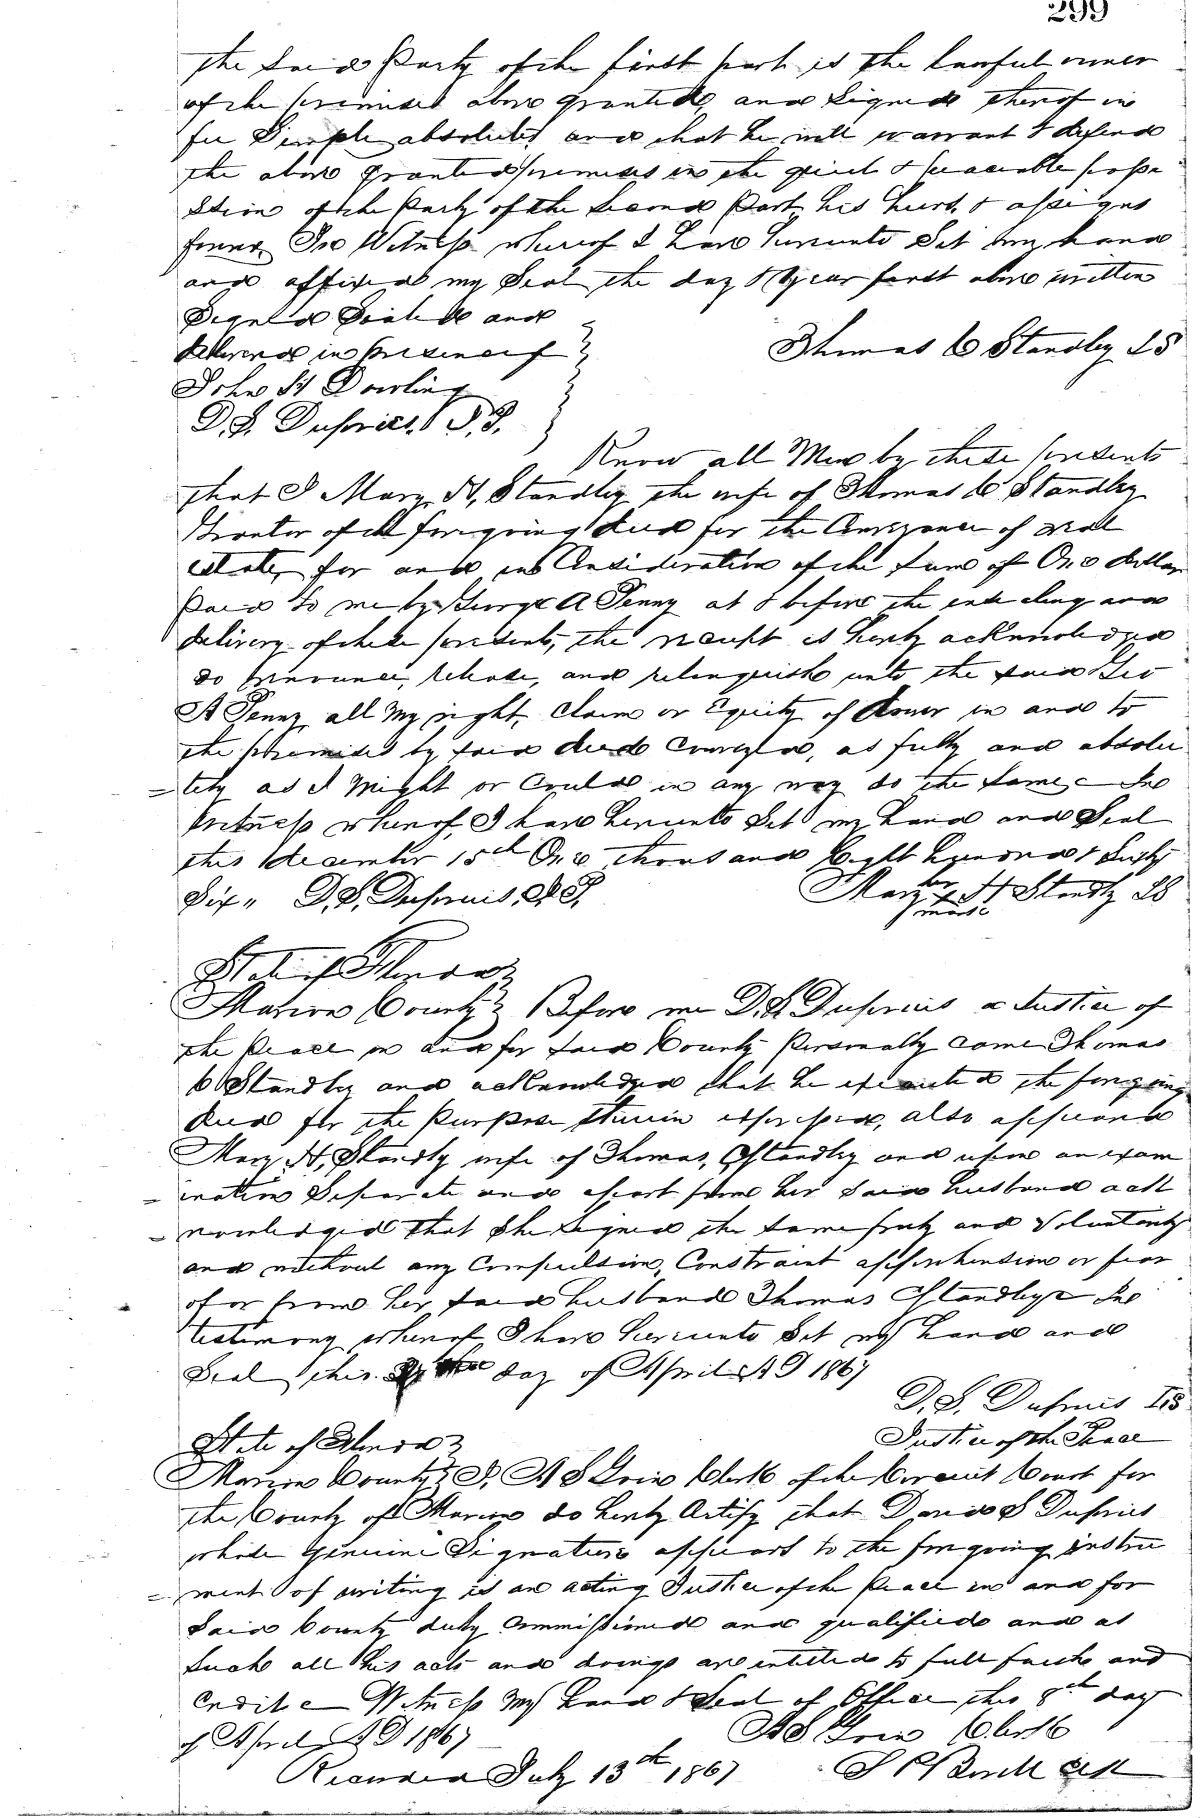 299
the Said Party of the first part is the Lawful owner
of the premises above granted, and Signed thereof in
fee Simple absolutely and that he will warrant & defend
the above granted premises in the quiet & peaceable posse
ssion of the Party of the Second Part his heirs, & assigns
forever, In Witness whereof I have hereunto Set my hand
and affixed my Seal the day & year first above written
Signed Sealed and
delivered in presence of
Thomas C Standley LS
John H Dowling
D. S. Dupries, J.P.
Know all Men by these presents
that I Mary, H, Standley the wife of Thomas C Standley
Grantor of the foregoing deed for the Conveyance of real
estate, for and in Consideration of the sum of One dollar
Paid to me by George A Penny at & before the ensealing and
delivery of these presents, the receipt is hereby acknowledged
do renounce, release, and relinquish unto the said Geo
A Penny, all my right, Claim or Equity of dower in and to
the premises by said deed Conveyed, as fully and absolu
=tely as I might or Could in any way do the same, In
Witness whereof, I have hereunto Set my hand and Seal
this december 15th One thousand Eight hundred & Sixty
Six " D. S. Dupries, J.P.
Mary her x mark H Standly LS
State of Florida
Marion County Before me D. S. Dupries a Justice of
the Peace in and for said County Personally came Thomas
C Standley and acknowledged that he executed the foregoing
deed for the Purpose therein expressed, also appeared
Mary, H, Standly wife of Thomas, C Standley and upon an exam
=ination Separate and apart from her said husband ack
=nowledged that She signed the same freely and Voluntarily
and without any Compulsion, Constraint apprehension or fear
of or from her, said husband Thomas C Standley In
testimony whereof I have hereunto Set my hand and
Seal this day of April AD 1867
D. S. Dupries LS
Justice of the Peace
State of Florida
Marion County I, A S Clerk of the Circuit Court for
the County of Marion do hereby Certify that David S Dupries
whose Genuine Signature appears to the foregoing instru
=ment of writing is an acting Justice of the Peace in and for
Said County duly Commissioned and qualified and as
such all his acts and doings are entitled to full faith and
Credit Witness my hand & Seal of Office this 8th day
of April AD 1867
A S Clerk
Recorded July 13th 1867